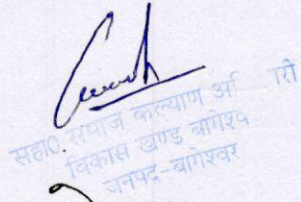 सहा0. समाज कल्याण अ री
विकास खण्ड बागेश्व
जनपद-बागेश्वर